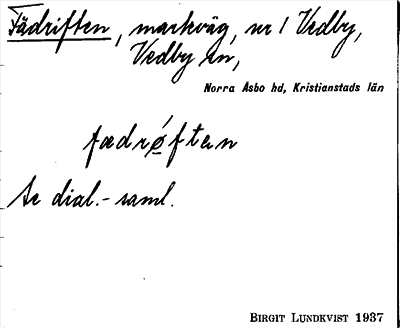 Fädriften, markväg, nr 1 Vedby,
Vedby sn,
Norra Åsbo hd, Kristianstads län
fædrǿften
Se dial.-saml.
BIRGIT LUNDKVIST 1937